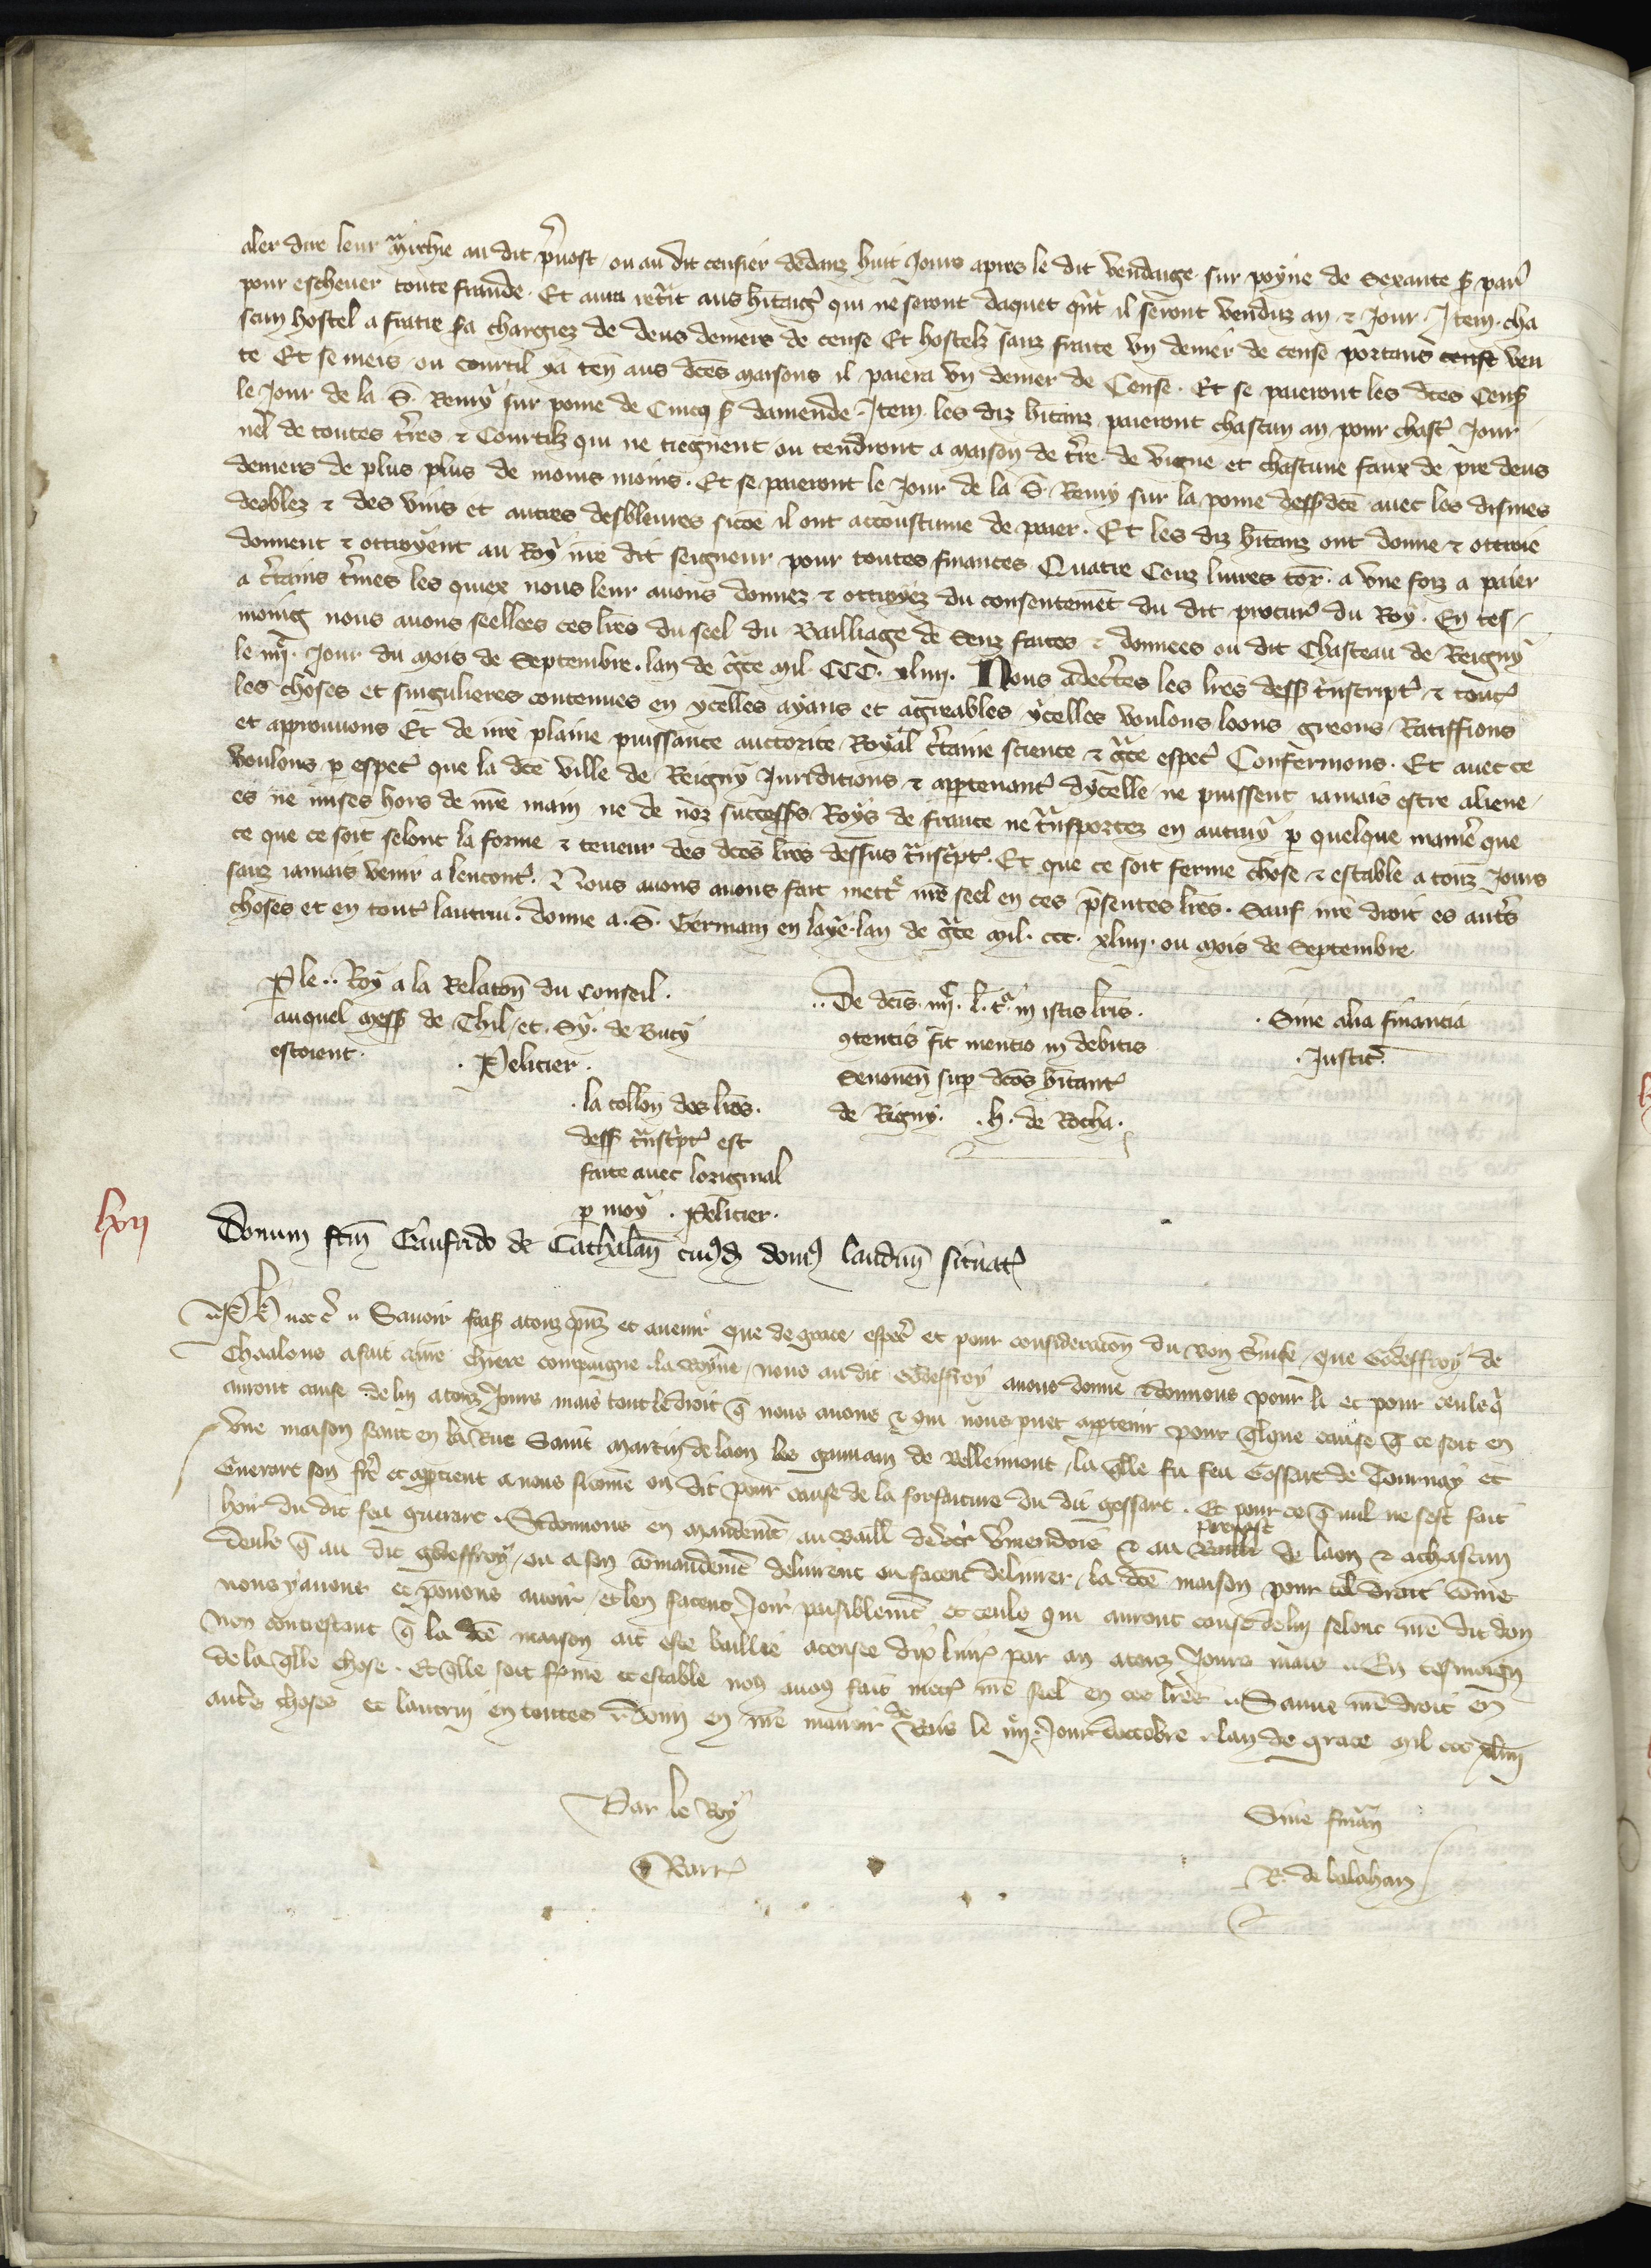 aler dire leur mᷓrchie au dit p̾uost ou au dit censier dedanz huit Jours apres le dit vendaige sur poyne de Sexante s̾ par̾
pour escheuer toute fraude. Et aura ret̾it aus h̾itaig̾ qui ne seront daquet q̾nt il seront venduz an ⁊ Jour. Item. cha
scun hostel a fraite s̾a chargiez de deus deniers de cense Et hostelz sanz fraite vn denier de cense portans cense ven
te Et se meis ou courtil y a ten̄ aus dc̄es maisons il paiera vn denier de Cense. Et se paieront les dc̄es Cens̾
le Jour de la S̄. Remy sur poine de Cincq s̾ damende. Item les diz h̾itanz paieront chascun an pour chasc̾ Jour
nel̾ de toutes t̾res ⁊ Courtilz qui ne tiegnent ou tendront a maison de t̾re de vigne et chascune faux de pre deus
deniers de plus plus de moins moins. Et se paieront le Jour de la S̄. Remy sur la poine dess̾ dc̄e auec les dismes
des blez ⁊ des vins et autres desbleures sicōe il ont accoustume de paier. Et les diz h̾itanz ont donne ⁊ ottroie
donnent ⁊ ottroyent au Roy nr̄e dit seigneur pour toutes finances Quatre Cenz liures tor̄. a vne foiz a paier
a c̾tains t̾mes les quex nous leur auons donnez ⁊ ottroyez du consentemēt du dit procur̾ du Roy. En tes
moing nous auons seellees ces lr̄es du seel du Bailliage de Senz faites ⁊ donnees ou dit Chasteau de Reigny
le iiij. Jour du mois de Septembre. lan de gᷓce mil CCC. xliiij. Nous adec̾tes les lr̄es dess̾ t̾nscript̾ ⁊ tout̾
les choses et singulieres contenues en ycelles ayans et agreables ycelles voulons loons greons Ratiffions
et approuuons Et de nr̄e plaine puissance auctorite Royal c̾taine science ⁊ gᷓce espec̾ Confermons. Et auec ce
voulons p espec̾ que la dc̄e ville de Reigny Juriditions ⁊ appartenant̾ dycelle ne puissent iamais estre aliene
es ne mises hors de nr̄e main ne de noz successs̾ Roys de france ne t̾nsportez en autruy p quelque manie̾ que
ce que ce soit selont la forme ⁊ teneur des dc̄es lr̄es dessus t̾nsc̾pt̾. Et que ce soit ferme chose ⁊ estable a touz Jours
sanz iamais venir a lencont̾. Nous auons auons fait mett̾e nr̄e seel en ces p̄sentes lr̄es. Sauf nr̄e droit es aut̾s
choses et en tout̾ lautrui. donne a. S̄. Germain en laye lan de gᷓce mil. ccc. xliiij. ou mois de Septembre
P le.. Roy a la Relatōn du Conseil.
auquel mess̾ de Thil. et. Sy. de Bucy
estoient.
. Pelicier.
. la collōn des lr̄es.
dess̾ t̾nsc̾pt̾ est
faite auec loriginal
p moy. Pelicier.
.. De dc̄is. iiijc. l. t̾. in istis lr̄is.
ꝯtentis fit mentio in debitis
Senonen̄ sup dc̄os h̾itant̾
de Rigny. . h. de Rocha.
. Sine alia financia
. Justic̾.
lxvij
Donum fc̄m Gaufrido de Cathalan̄ cuiꝰd domꝰ laudun̄ situat̾
Ph̾ etc̾ Sauoir fais̾ a touz p̄nz et auenir que de grace espec̾ et pour consideracōn du bon s̾uise que Godeffroy de
Chaalons a fait a nr̄e chiere compaigne la Royne, nous au dit Godeffroy auons donne ⁊ donnons pour li et pour ceuls q̾
auront cause de lui a touz Jours mais tout le droit q̄ nous auons ⁊ qui nous puet apptenir pour q̄lque cause q̄ ce soit en
vne maison seant en la Rue Saint Martin de laon les gaumain de Bellemont, la q̄lle fu feu Gossart de Tournay et
Guerart son fre̾ et apptient a nous sicomme on dit pour cause de la forfaiture du dit gossart. Et pour ce q̄ nul ne sest fait
hoir du dit feu guerart. Si donnons en mandemēt au baill̾ de v̾mendois ⁊ au prevost de laon ⁊ a chascun
deuls q̄ au dit godeffroy, ou a son cōmandemēt deliurent ou facent deliurer, la dc̄e maison pour tel droit cōme
nous y auons et pouons auoir, et len facent Joir paisiblemēt et ceuls qui auront cause de lui selont nr̄e dit don
non contrestant q̄ la dc̄e maison ait este baillie a censee dix liur̾ par an a touz Jours mais. En tesmoign
de la q̄lle chose. Et q̄lle soit ferme et estable noꝰ auōs fait mett̾ nr̄e seel en ces lr̄es. Sauue nr̄e droit en
autr̾s choses et lautrui en toutes. Donn̄ en nr̄e manoir de Bris le iiij. Jour doctobre. lan de grace mil ccc xliiij
Par le Roy
Barr̾
Sine finan̄
R. de balahan